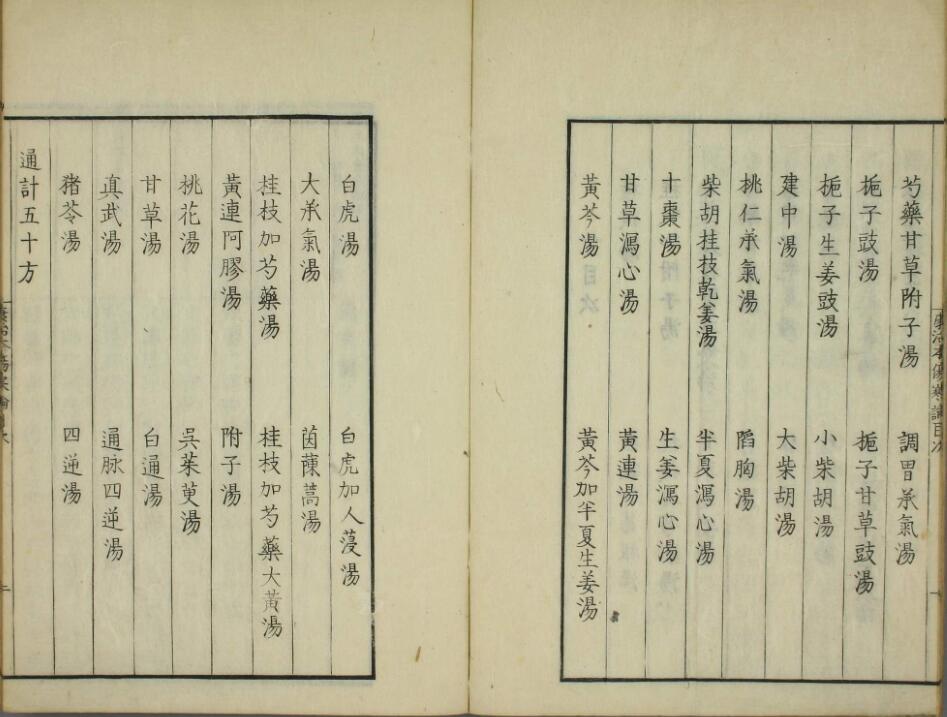 芍藥甘草附子湯 調胃承氣湯
梔子豉湯 梔子甘草豉湯
梔子生姜豉湯 小柴胡湯
建中湯 大柴胡湯
桃仁承氣湯 陷胸湯
柴胡桂枝乾姜湯 半夏瀉心湯
十棗湯 生姜瀉心湯
甘草瀉心湯 黃連湯
黃芩湯 黃芩加半夏生姜湯
康治本傷寒論目次
白虎湯 白虎加人薓湯
大承氣湯 茵蔯蒿湯
桂枝加芍藥湯 桂枝加芍藥大黃湯
黃連阿膠湯 附子湯
桃花湯 吳茱萸湯
甘草湯 白通湯
真武湯 通脉四逆湯
猪苓湯 四逆湯
通計五十方